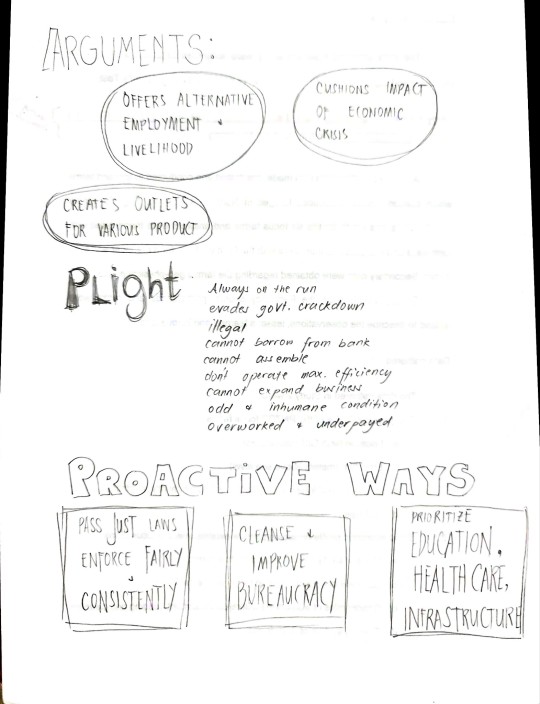 ARGUMENTS:
OFFERS ALTERNATIVE
EMPLOYMENT &
LIVELIHOOD
CUSHIONS IMPACT
OF ECONOMIC
CRISIS
CREATES OUTLETS
FOR VARIOUS PRODUCT
PLight
Always on the run
evades govt. crackdown
illegal
cannot borrow from bank
cannot assemble
don't operate max. efficiency
cannot expand business
odd & inhumane condition
overworked & underpayed
PROACTIVE WAYS
PASS JUST LAWS
ENFORCE FAIRLY
&
CONSISTENTLY
CLEANSE &
IMPROVE
BUREAUCRACY
PRIORITIZE
EDUCATION,
HEALTH CARE,
INFRASTRUCTURE